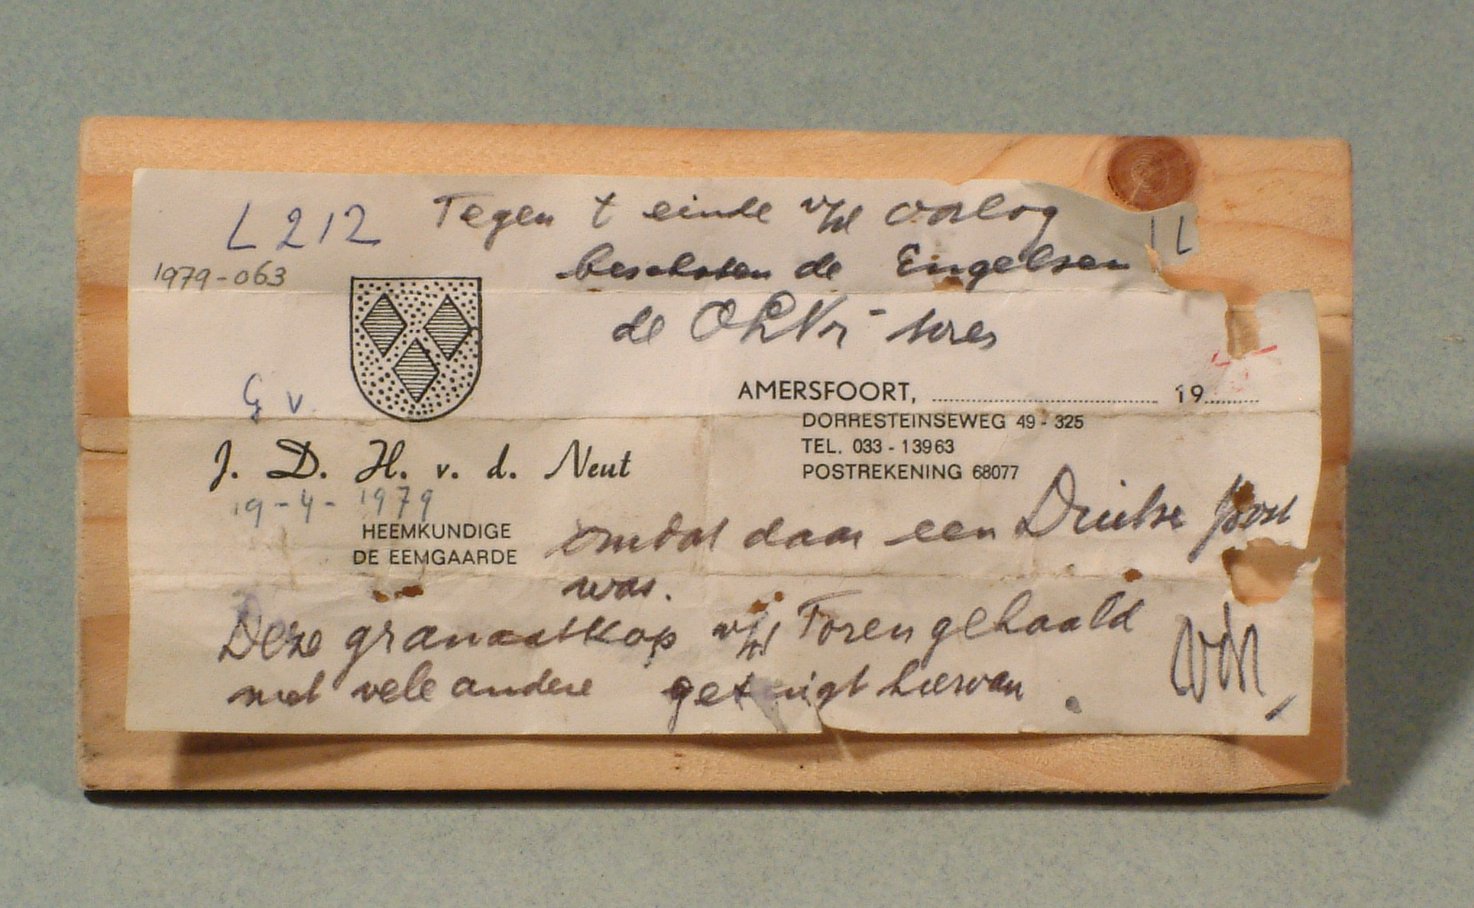 L 212 Tegen t einde v/d oorlog
1979-063
beschoten de Engelsen
de OLVr- toren
AMERSFOORT, 19
DORRESTEINSEWEG 49 - 325
TEL. 033 - 13963
POSTREKENING 68077
G v.
J. D. H. v. d. Neut
19-4-1979
HEEMKUNDIGE
DE EEMGAARDE
omdat daar een Duitse post
was.
Deze granaatkop v/d Toren gehaald
met vele andere getuigt hiervan.
vdN